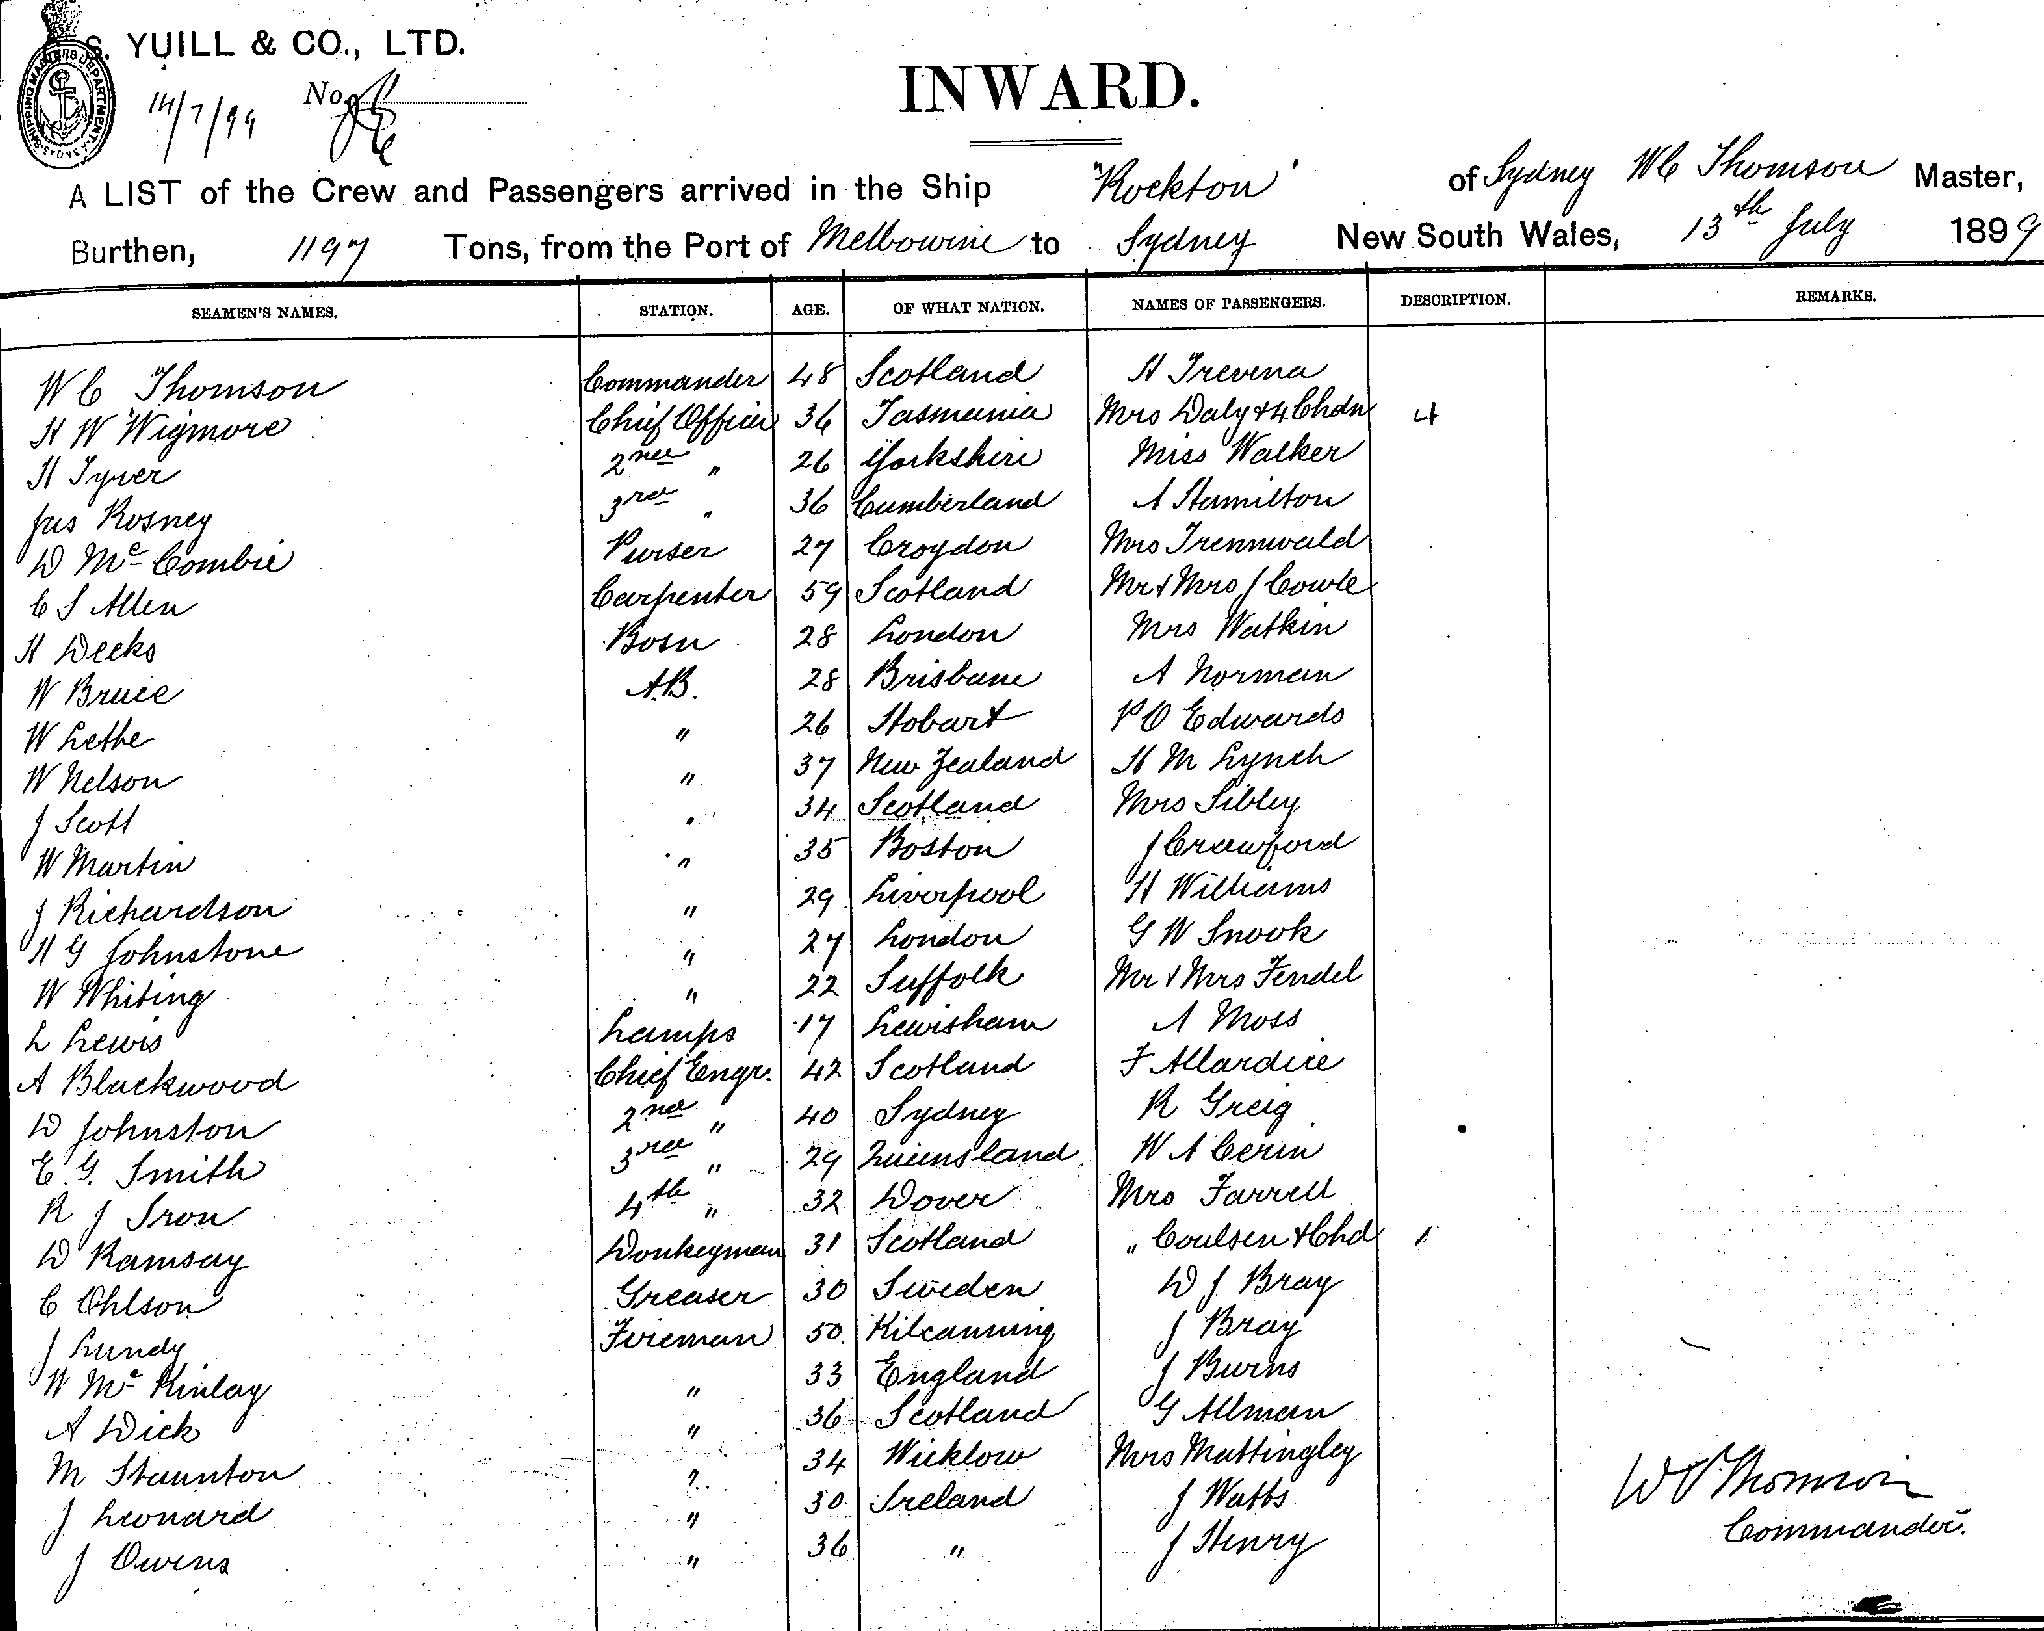 S. YUILL & CO., LTD.
SHIPPING MASTERS DEPARTMENT
14/7/99 No.
INWARD.
A LIST of the Crew and Passengers arrived in the Ship "Rockton" of Sydney W C Thomson Master,
Burthen, 1197 Tons, from the Port of Melbourne to Sydney New South Wales, 13th July 1899
SEAMEN'S NAMES. STATION. AGE. OF WHAT NATION. NAMES OF PASSENGERS. DESCRIPTION. REMARKS.
W C Thomson Commander 48 Scotland H Trevena
H W Wigmore Chief Officer 36 Tasmania Mrs Daly & 4 Chdn 4
H Tyrer 2nd " 26 Yorkshire Miss Walker
Jas Rosney 3rd " 36 Cumberland A Hamilton
D McCombie Purser 27 Croydon Mrs Trennwald
C S Allen Carpenter 59 Scotland Mr & Mrs J Cowle
H Deeks Bosn 28 London Mrs Watkin
W Bruce A.B. 28 Brisbane A Norman
W Lethe " 26 Hobart P O Edwards
W Nelson " 37 New Zealand H M Lynch
J Scott " 34 Scotland Mrs Sibley
W Martin " 35 Boston J Crawford
J Richardson " 29 Liverpool H Williams
H G Johnstone " 27 London G W Snook
W Whiting " 22 Suffolk Mr & Mrs Fendel
L Lewis Lamps 17 Lewisham A Moss
A Blackwood Chief Engr. 42 Scotland F Allardice
D Johnston 2nd " 40 Sydney R Greig
E. G. Smith 3rd " 29 Queensland W A Cerin
R J Iron 4th " 32 Dover Mrs Farrell
D Ramsay Donkeyman 31 Scotland " Coulsen & Chd 1
C Ohlson Greaser 30 Sweden D J Bray
J Lundy Fireman 50 Kilcanning J Bray
W McKinlay " 33 England J Burns
A Dick " 36 Scotland G Allman
M Staunton " 34 Wicklow Mrs Mattingley
J Leonard " 30 Ireland J Watts
J Owens " 36 " J Henry
W C Thomson
Commander.